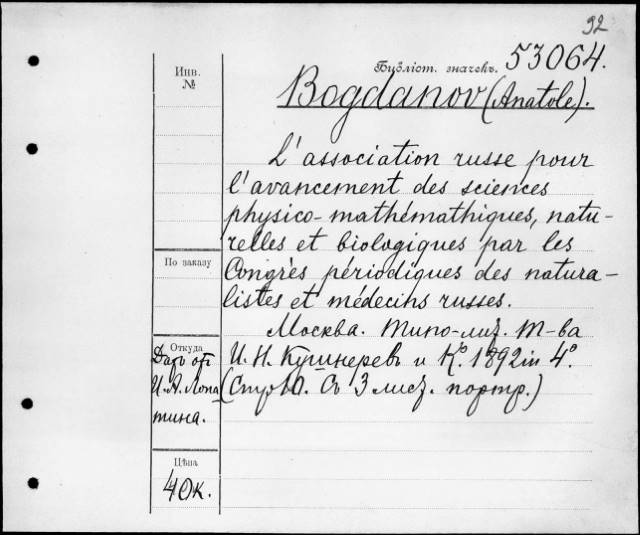 92
Инв.
№
Бубліот. значекъ. 53064.
Bogdanov (Anatole).
L'association russe pour
l'avancement des sciences
physico-mathémathiques, natu-
relles et biologiques par les
Congrès périodiques des natura-
listes et médecins russes.
Москва. Типо-лит. Т-ва
И. Н. Кушнеревъ и Ко. 1892 in 4o.
(Стр. Съ 3 лист. портр.)
По заказу
Откуда
Даръ отъ
И. А. Лопа
тина.
Цѣна
40к.